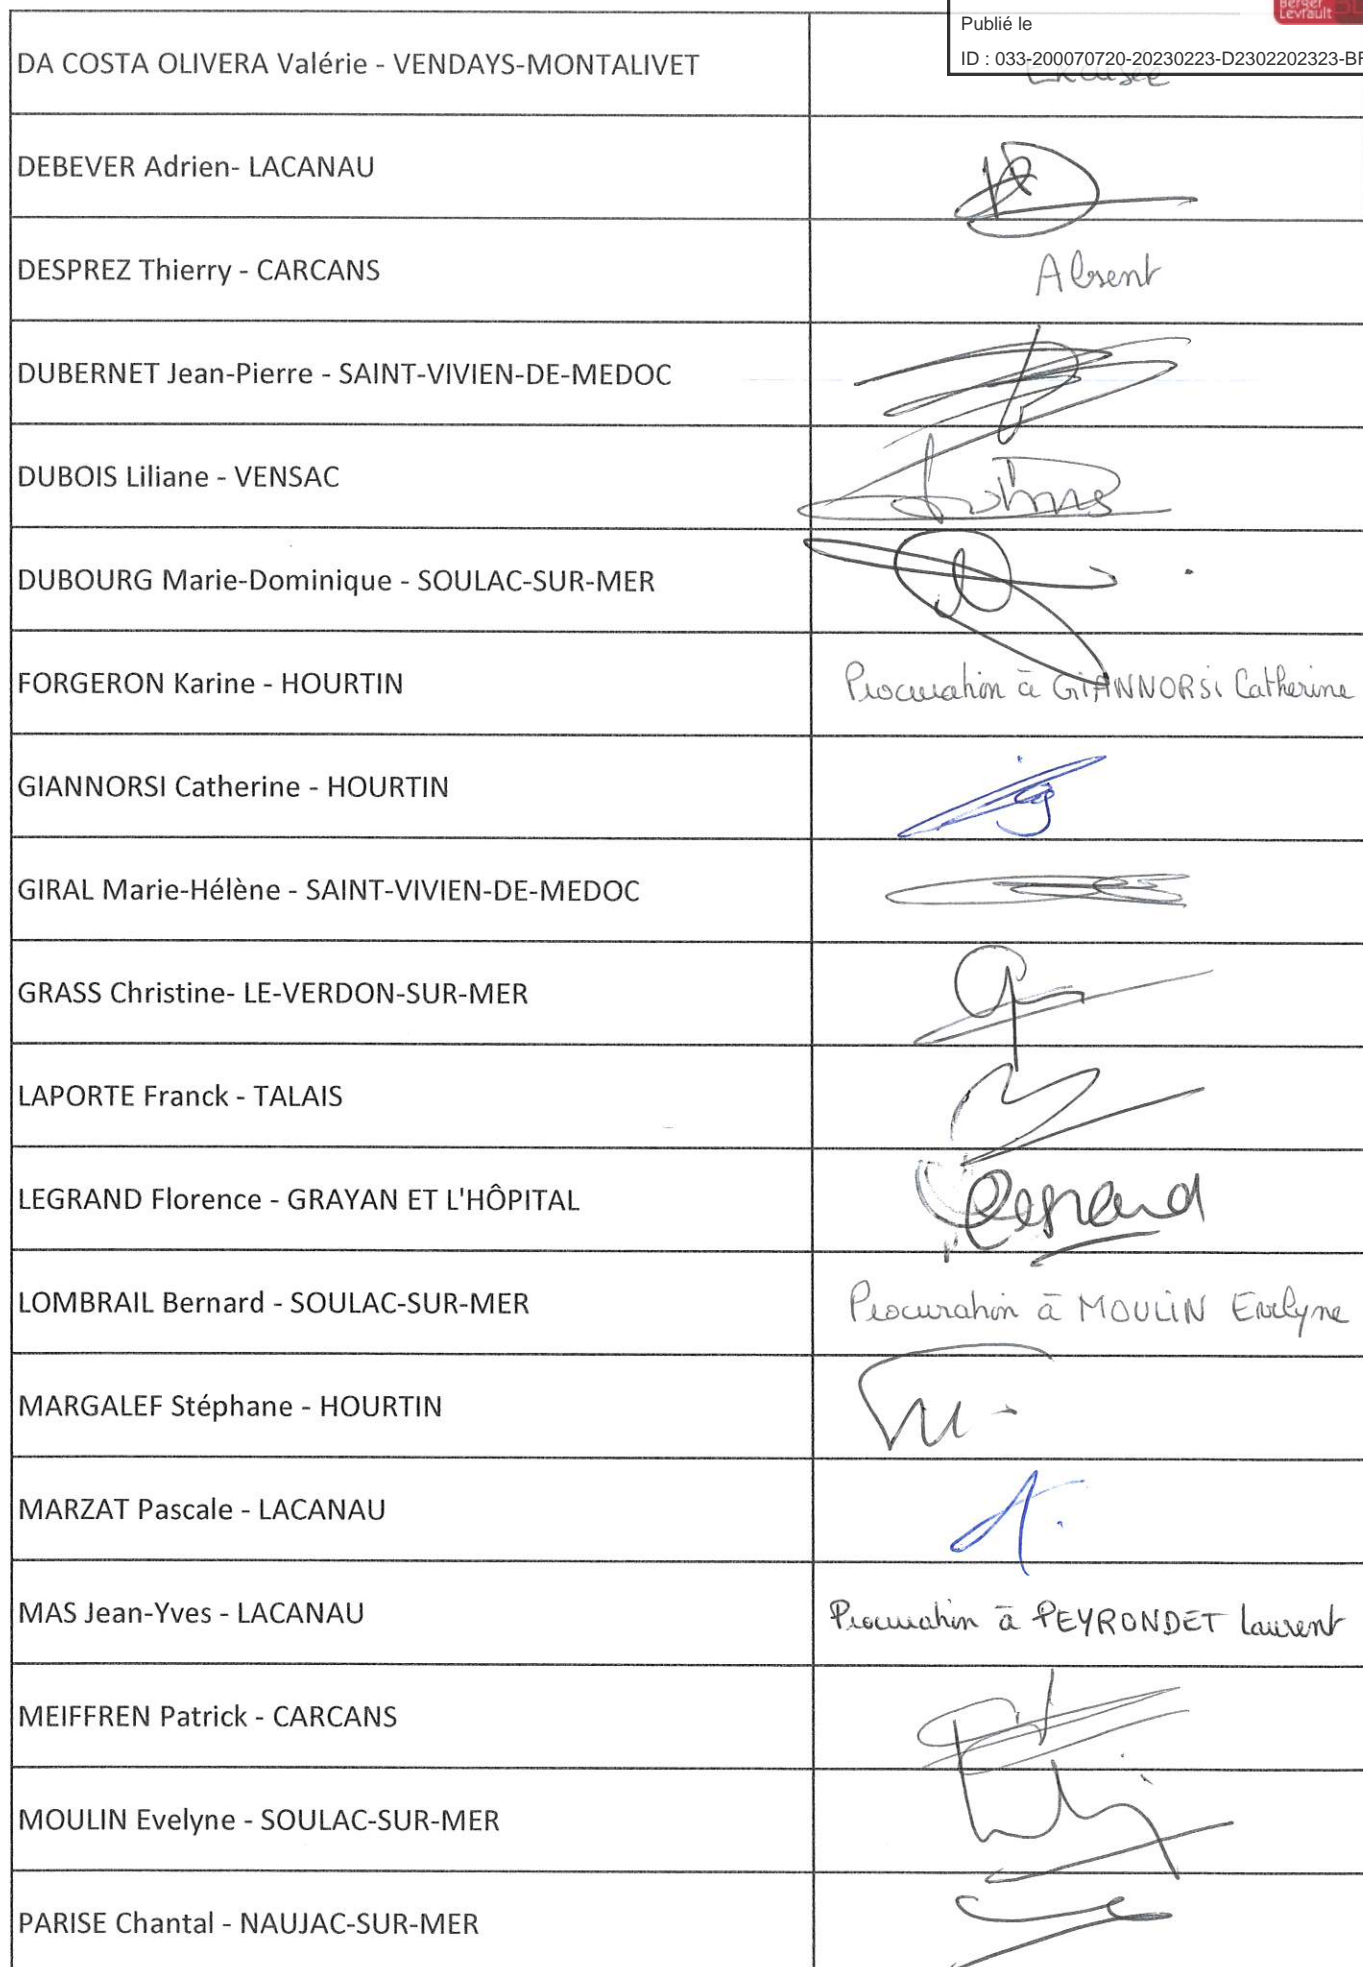 Berger
Levrault
Publié le
ID : 033-200070720-20230223-D2302202323-
DA COSTA OLIVERA Valérie - VENDAYS-MONTALIVET
Excusée
DEBEVER Adrien- LACANAU
DESPREZ Thierry - CARCANS
Absent
DUBERNET Jean-Pierre - SAINT-VIVIEN-DE-MEDOC
DUBOIS Liliane - VENSAC
DUBOURG Marie-Dominique - SOULAC-SUR-MER
FORGERON Karine - HOURTIN
Procuration à GIANNORSI Catherine
GIANNORSI Catherine - HOURTIN
GIRAL Marie-Hélène - SAINT-VIVIEN-DE-MEDOC
GRASS Christine- LE-VERDON-SUR-MER
LAPORTE Franck - TALAIS
LEGRAND Florence - GRAYAN ET L'HÔPITAL
Legrand
LOMBRAIL Bernard - SOULAC-SUR-MER
Procuration à MOULIN Evelyne
MARGALEF Stéphane - HOURTIN
MARZAT Pascale - LACANAU
MAS Jean-Yves - LACANAU
Procuration à PEYRONDET Laurent
MEIFFREN Patrick - CARCANS
MOULIN Evelyne - SOULAC-SUR-MER
PARISE Chantal - NAUJAC-SUR-MER